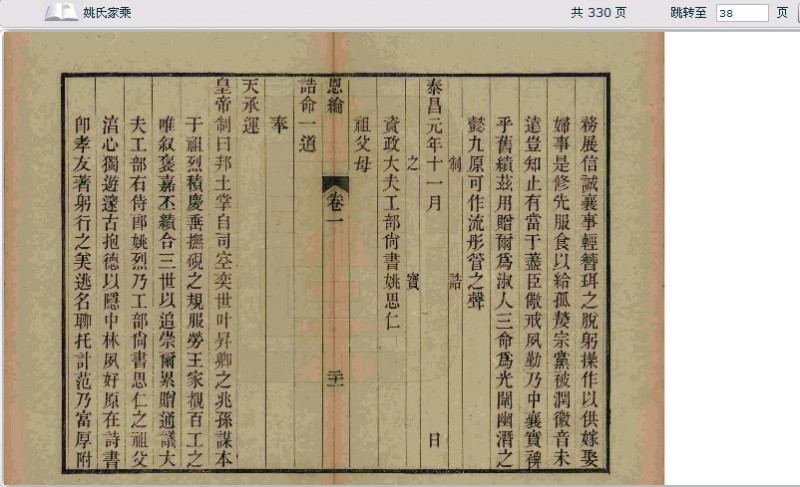 姚氏家乘
共 330 页
跳转至 38 页
務展信誠襄事輕簪珥之脫躬操作以供嫁娶
婦事是修先服食以給孤嫠宗黨被潤徽音未
遠豈知止有當于藎臣儆戒夙勤乃中襄實裨
乎舊績茲用贈爾爲淑人三命爲光闡幽潛之
懿九原可作流彤管之聲
制 誥
泰昌元年十一月 日
之 寶
資政大夫工部尙書姚思仁
祖父母
恩綸 卷一 二十一
誥命一道
奉
天承運
皇帝制曰邦土掌自司空奕世叶昇卿之兆孫謀本
于祖烈積慶垂撫硯之規服勞王家覩百工之
唯叙褒嘉丕績合三世以追崇爾累贈通議大
夫工部右侍郎姚烈乃工部尙書思仁之祖父
滀心獨遊邃古抱德以隱中林夙好原在詩書
卽孝友著躬行之美逃名聊托計范乃富厚附